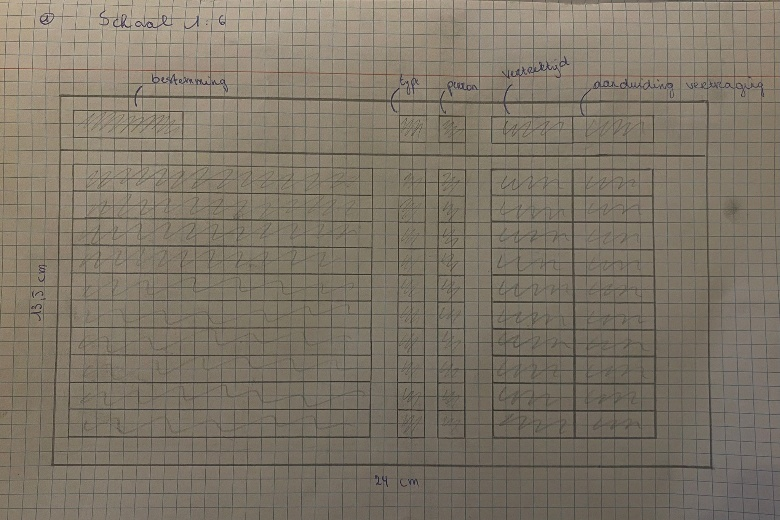 ② Schaal 1:6
bestemming
type
perron
vertrektijd
aanduiding vertraging
13,5 cm
24 cm